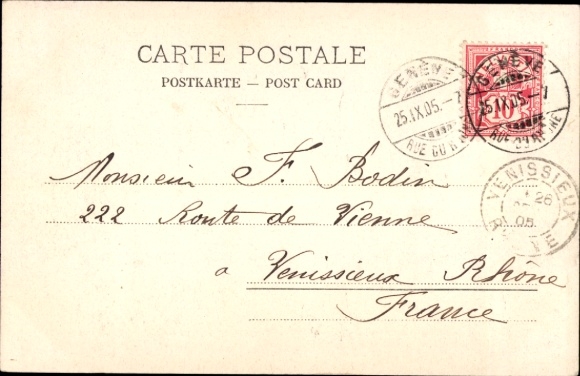 CARTE POSTALE
POSTKARTE — POST CARD
GENÈVE
25.IX.05.–7
GENÈVE
25.IX.05.–7
10
VENISSIEUX
26
05
Monsieur F. Bodin
222 Route de Vienne
a Venissieux Rhône
France